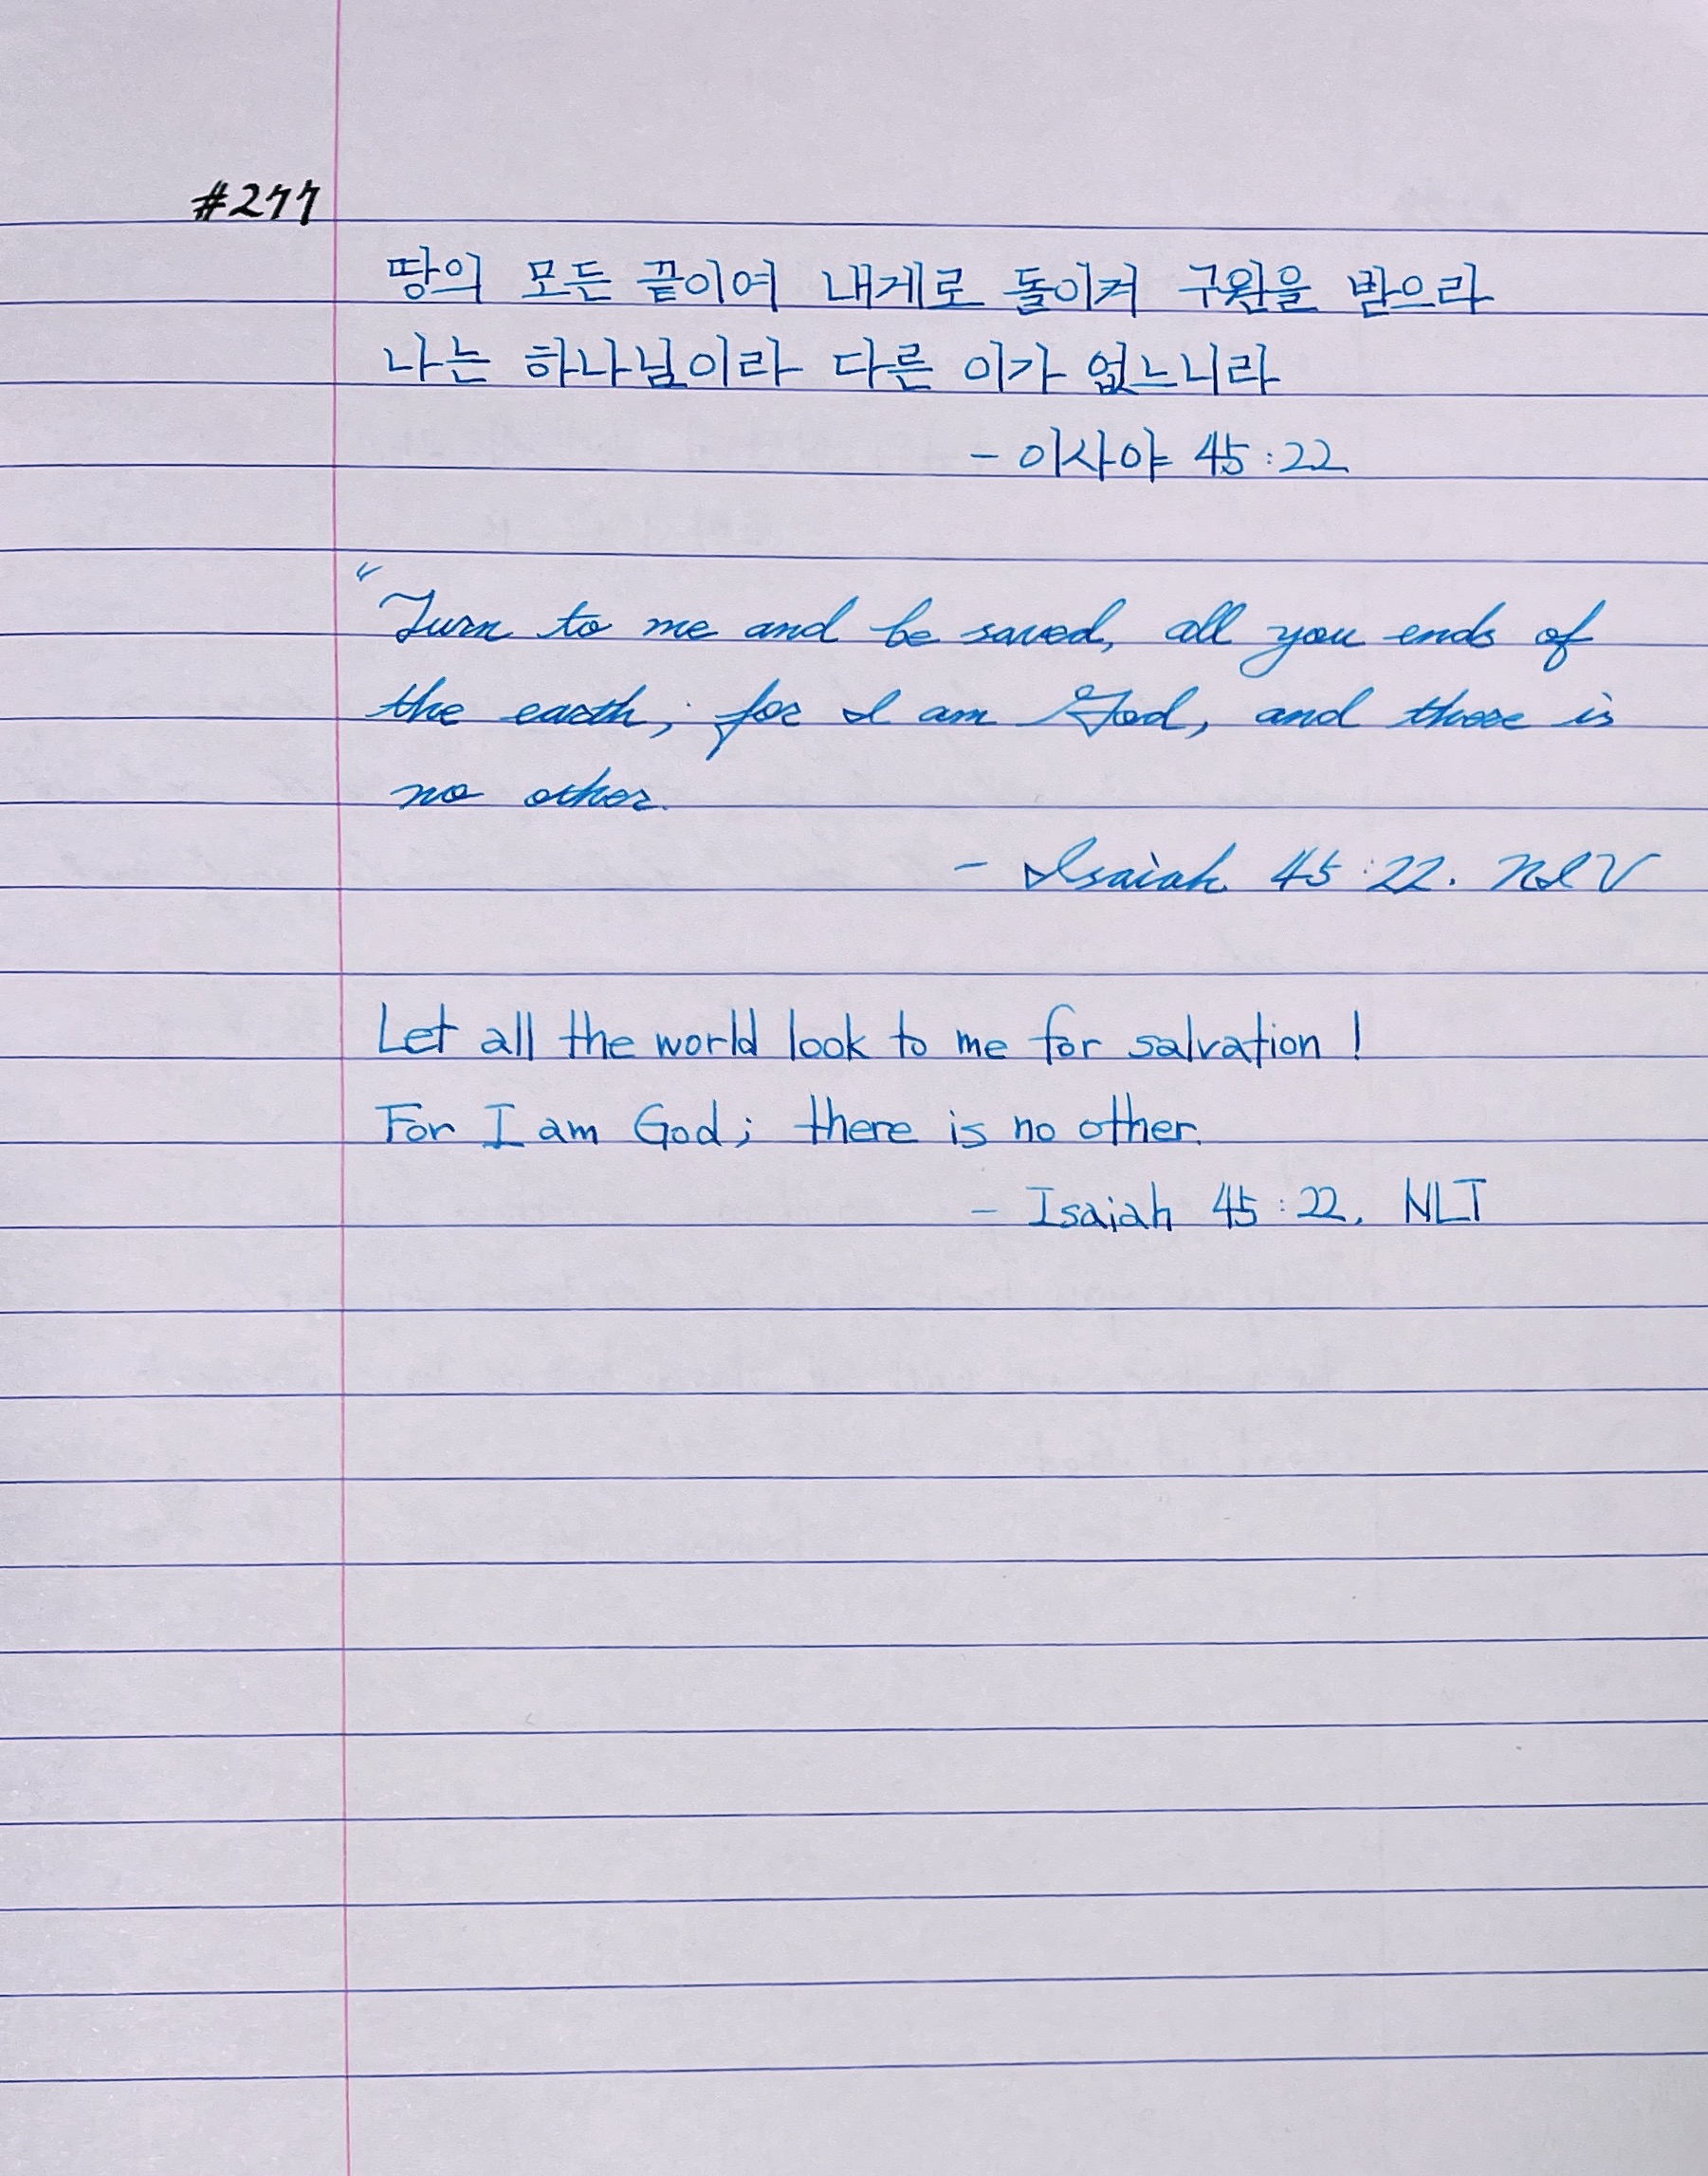 #277
땅의 모든 끝이여 내게로 돌이켜 구원을 받으라
나는 하나님이라 다른 이가 없느니라
- 이사야 45:22
"Turn to me and be saved, all you ends of
the earth; for I am God, and there is
no other.
- Isaiah 45:22. NIV
Let all the world look to me for salvation!
For I am God; there is no other.
- Isaiah 45:22. NLT